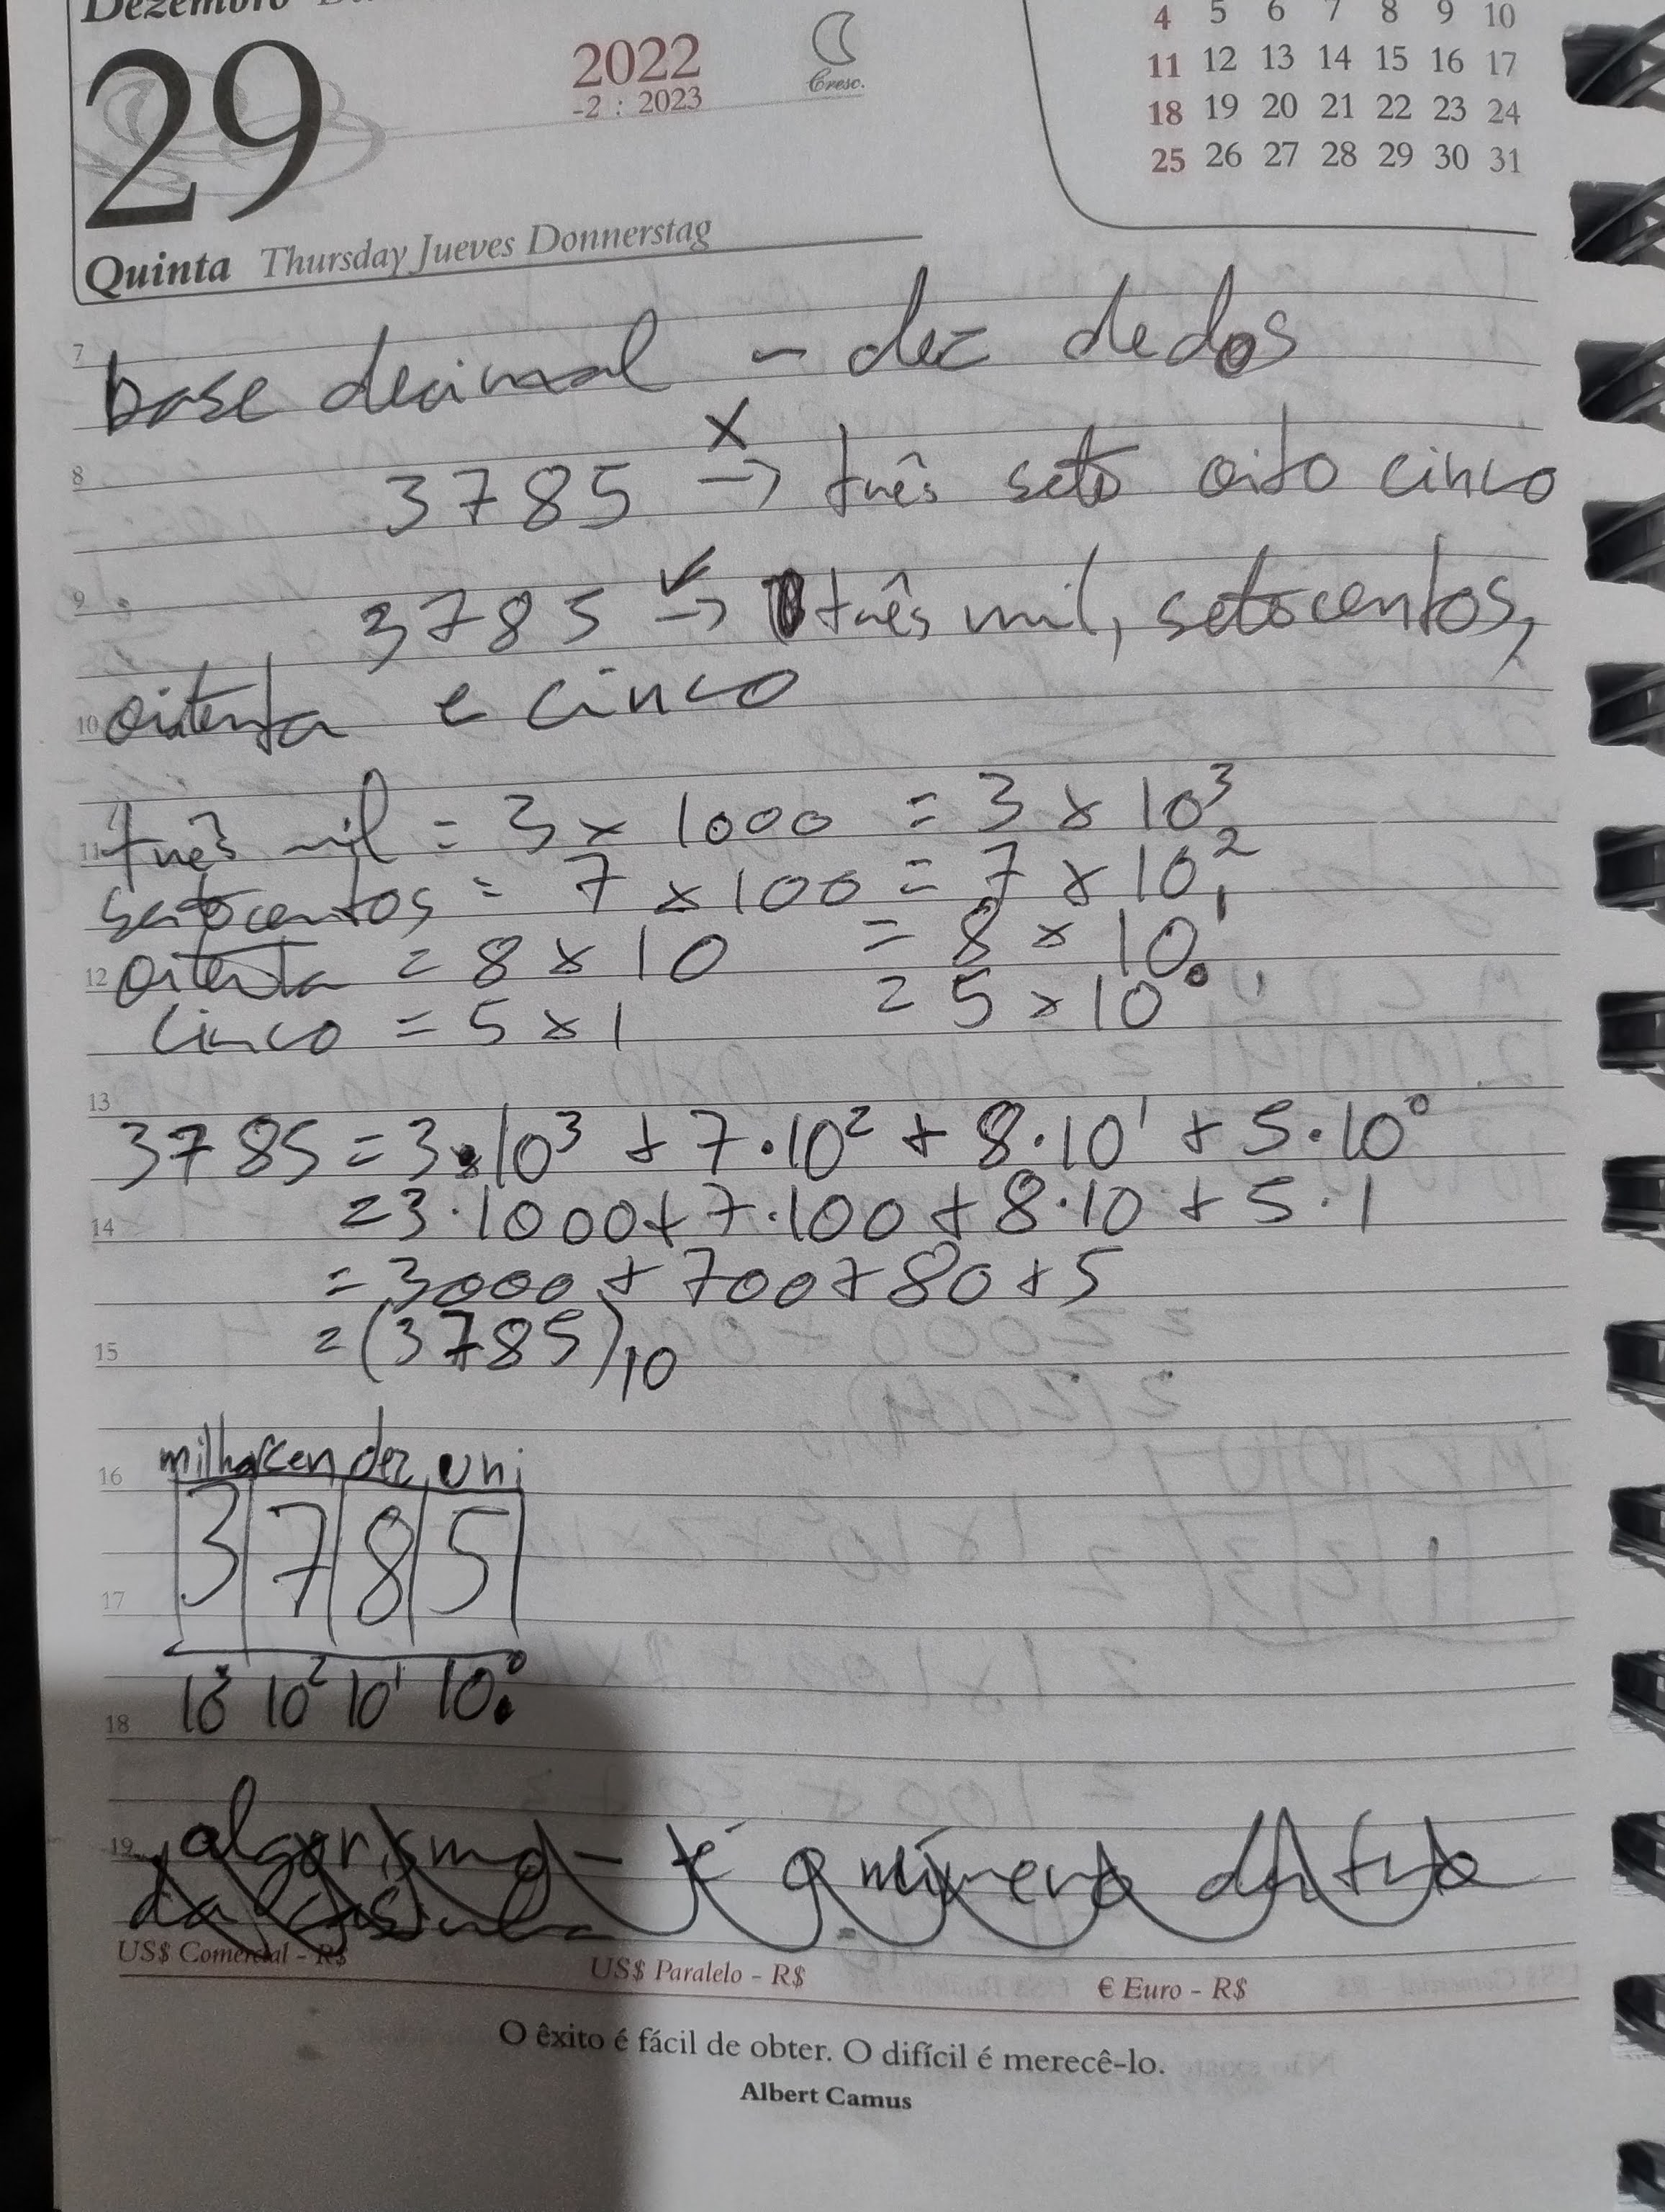 Dezembro
29
2022
-2 : 2023
Cresc.
4 5 6 7 8 9 10
11 12 13 14 15 16 17
18 19 20 21 22 23 24
25 26 27 28 29 30 31
Quinta Thursday Jueves Donnerstag
7 base decimal - dez dedos
8 3785 x→ três sete oito cinco
9 3785 ✓→ três mil, setecentos,
10 oitenta e cinco
11 três mil = 3 x 1000 = 3 x 10³
setecentos = 7 x 100 = 7 x 10²
12 oitenta = 8 x 10 = 8 x 10¹
cinco = 5 x 1 = 5 x 10⁰
13
3785 = 3·10³ + 7·10² + 8·10¹ + 5·10⁰
14 = 3·1000 + 7·100 + 8·10 + 5·1
= 3000 + 700 + 80 + 5
15 = (3785)₁₀
16 milhar cen dez uni
3 7 8 5
17
10³ 10² 10¹ 10⁰
18
19 algarismo - é o número dentro
da casinha
US$ Comercial - R$ US$ Paralelo - R$ € Euro - R$
O êxito é fácil de obter. O difícil é merecê-lo.
Albert Camus